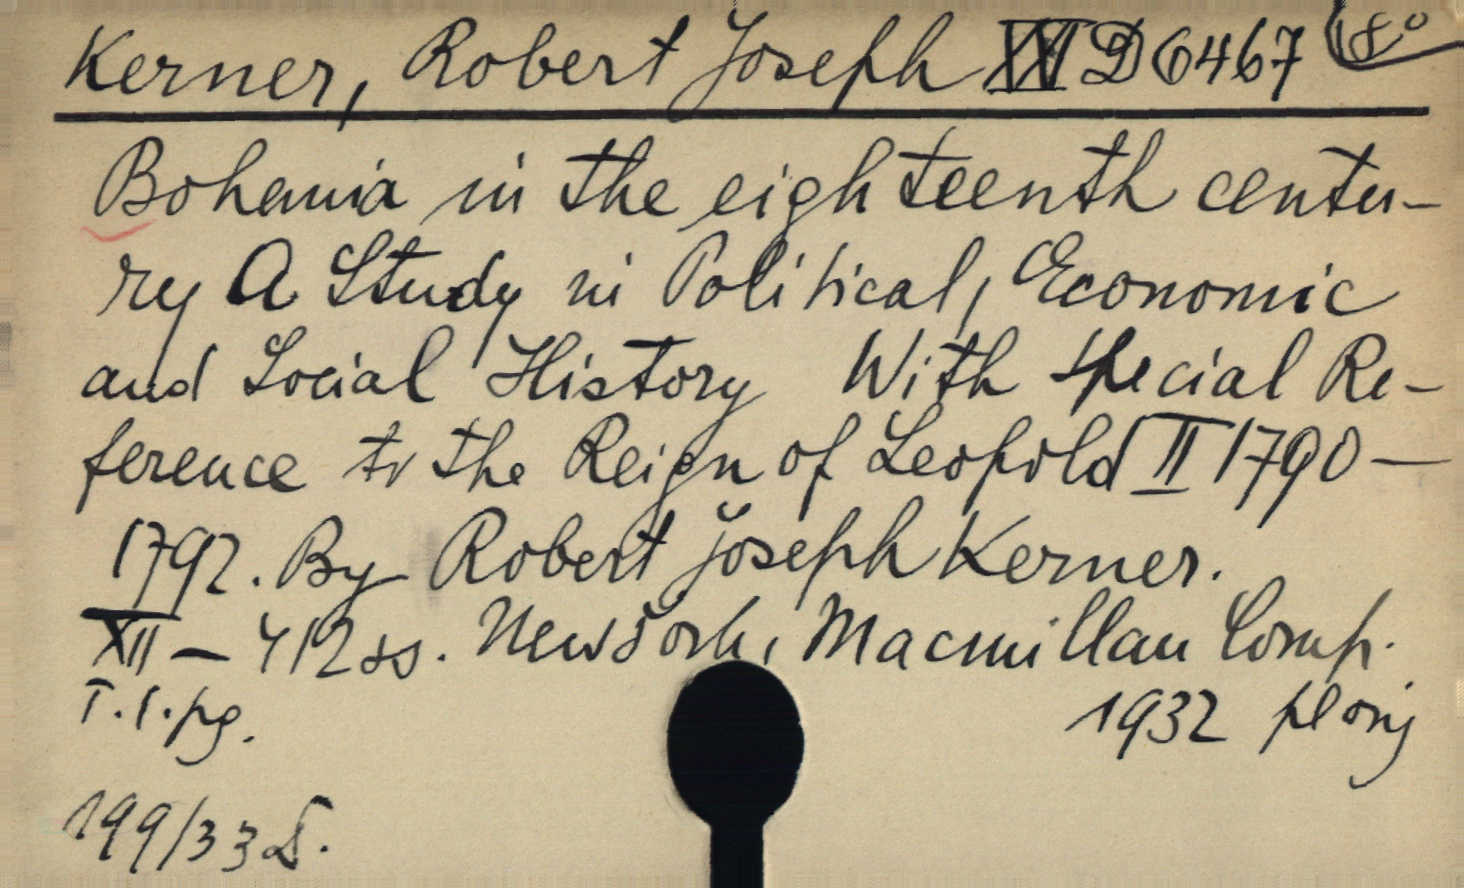 Kerner, Robert Joseph XXI D 6467 8°
Bohemia in the eighteenth centu-
ry A Study in Political, Economic
and Social History With Special Re-
ference to the Reign of Leopold II 1790-
1792. By Robert Joseph Kerner.
XII - 412 ss. New York, Macmillan Comp.
T. 1. pg. 1932 pl orig
199/33 S.